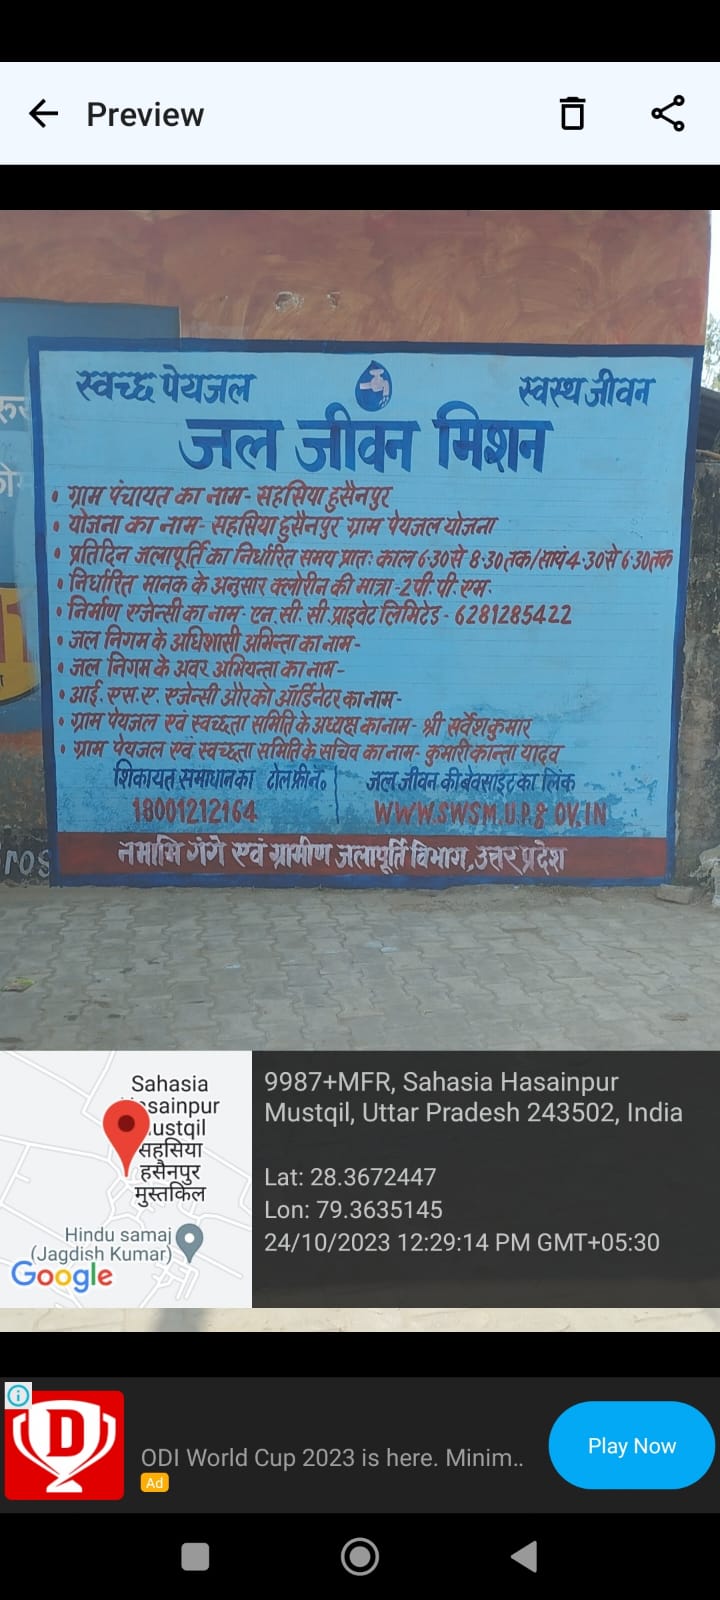 Preview
स्वच्छ पेयजल
स्वस्थ जीवन
जल जीवन मिशन
• ग्राम पंचायत का नाम- सहसिया हुसैनपुर
• योजना का नाम- सहसिया हुसैनपुर ग्राम पेयजल योजना
• प्रतिदिन जलापूर्ति का निर्धारित समय प्रातः काल 6.30 से 8.30 तक/सायं 4.30 से 6.30 तक
• निर्धारित मानक के अनुसार क्लोरीन की मात्रा-2 पी.पी.एम.
• निर्माण एजेन्सी का नाम- एन.सी.सी. प्राइवेट लिमिटेड - 6281285422
• जल निगम के अधिशासी अभिन्ता का नाम-
• जल निगम के अवर अभियन्ता का नाम-
• आई.एस.ए. एजेन्सी और को ऑर्डिनेटर का नाम-
• ग्राम पेयजल एवं स्वच्छता समिति के अध्यक्ष का नाम- श्री सर्वेश कुमार
• ग्राम पेयजल एवं स्वच्छता समिति के सचिव का नाम- कुमारी कान्ता यादव
शिकायत समाधान का टोल फ्री नं०
18001212164
जल जीवन की बेवसाइट का लिंक
WWW.SWSM.UP.GOV.IN
नमामि गंगे एवं ग्रामीण जलापूर्ति विभाग, उत्तर प्रदेश
ros
Sahasia
Hasainpur
Mustqil
सहसिया
हसैनपुर
मुस्तकिल
Hindu samaj
(Jagdish Kumar)
Google
9987+MFR, Sahasia Hasainpur
Mustqil, Uttar Pradesh 243502, India
Lat: 28.3672447
Lon: 79.3635145
24/10/2023 12:29:14 PM GMT+05:30
D
ODI World Cup 2023 is here. Minim..
Ad
Play Now